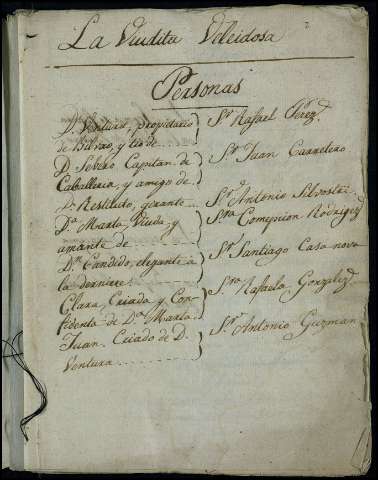 La Viudita Veleidosa
Personas
D. Ventura, propietario Sr. Rafael Perez.
de Bilbao, y tio de
D. Severo Capitan de Sr. Juan Carretero
Caballeria, y amigo de
Dn. Restituto, gerente Sr. Antonio Silvostri
Dª. Marta, Viuda, y Sra. Concepcion Rodriguez
amante de
Dn. Candido, elegante a Sr. Santiago Casanova
la derniere
Clara, Criada y Con- Sra. Rafaela Gonzalez
fidenta de Dª. Marta
Juan, Criado de D. Sr. Antonio Guzman
Ventura